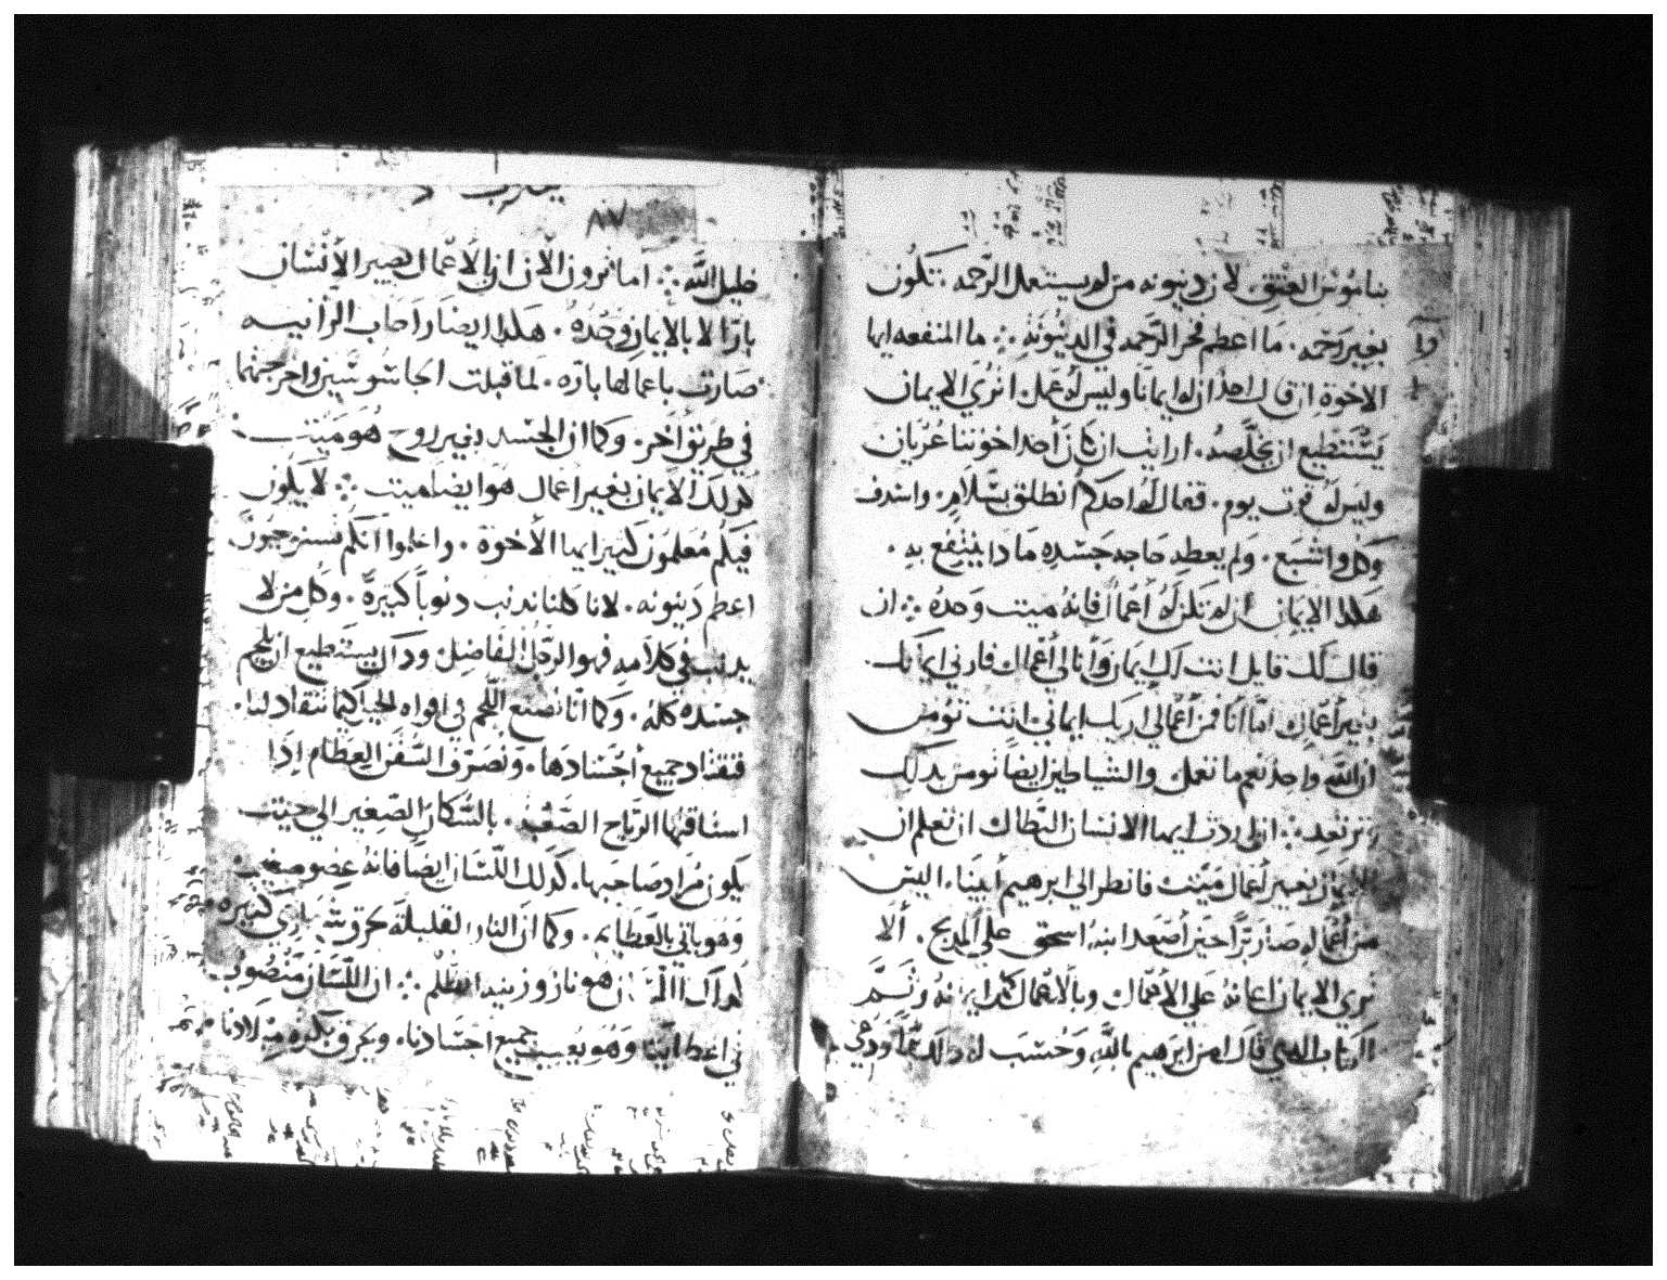 بناموس العتق. لان دينونه من لم يستعمل الرحمه. تكون
بغير رحمه. ما اعظم فخر الرحمه في الدينونه ؞ ما المنفعه ايها
الاخوة ان قال احد ان له ايمانا وليس له عمل. اترى الايمان
يستطيع ان يخلصه. ارايت ان كان أحد اخوتنا عريان
وليس له قوت يوم. فقال له احدكم انطلق بسلام. واستدف
وكل واشبع. ولم يعطه حاجه جسده ماذا ينتفع به.
هكذا الايمان أن لم تكن له أعمال فانه ميت وحده ؞ ان
قال لك قايل انت لك ايمان وأنا لي أعمال فارني ايمانك
بغير أعمال. امّا أنا فمن أعمالي اريك ايماني. انت تؤمن
ان الله واحد نعم ما تعمل. والشياطين ايضاً تومن بدلك
وترتعد ؞ ان اردت ايها الانسان البطال ان تعلم ان
الايمان بغير أعمال ميت فانظر الي ابرهيم أبينا. اليس
من أعماله صار برّاً حين أصعد ابنه اسحق علي المدبح. ألا
تري الايمان اعانه علي الأعمال وبالأعمال كمل ايمانه وتم
الكتاب الدي قال امن ابرهيم بالله وحسب له دلك برّاً ودعي
٨٧
خليل الله ؞ اما ترون الان ان بالأعمال يصير الأنسان
بارّا لا بالايمان وحده. هكدا ايضا راحاب الزانيه
صارت باعمالها بارّه. لما قبلت الجاسوسين واخرجتهما
في طريق أخر. وكما ان الجسد بغير روح هو ميت
كدلك الايمان بغير أعمال هو ايضا ميت ؞ لا يكون
فيكم معلمون كثير ايها الأخوة. واعلموا انكم تستوجبون
اعظم دينونه. لانا كلنا ندنب دنوباً كثيرة. وكل من لا
يدنب في كلامه فهو الرجل الفاضل ودال يستطيع ان يلجم
جسده كله. وكما انا نضع اللجم في افواه الخيل كيما تنقاد لنا.
فتنقاد جميع أجسادها. وتصرف السفن العظام ادا
استاقتها الرياح الصعبه. بالسكان الصغير الي حيت
يكون مراد صاحبها. كدلك اللسان ايضا فانه عضو صغير
وهو ياتي بالعظايم. وكما ان النار القليلة تحرق شيا كثيره
كداك اللسان هو نار وزينه الظلم ؞ ان اللسان منصوب
في اعضاينا وهو يعيب جميع اجسادنا. ويحرق بكره ميلادنا